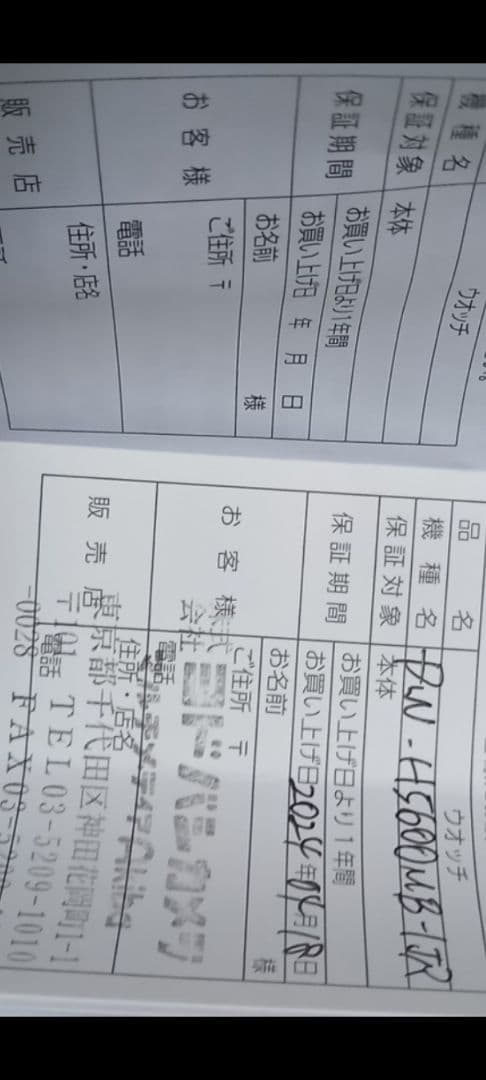 機種名 ウオッチ
保証対象 本体
保証期間 お買い上げ日より1年間
お買い上げ日 年 月 日
お客様 お名前 様
ご住所 〒
電話
販売店 住所・店名
品名 ウオッチ
機種名 DW-H5600MB-1JR
保証対象 本体
保証期間 お買い上げ日より1年間
お買い上げ日 2024年04月18日
お客様 お名前 様
ご住所 〒
電話
会社ヨドバシカメラ
販売店 住所・店名
東京都千代田区神田花岡町1-1
〒101 電話 TEL03-5209-1010
-0028 FAX03-